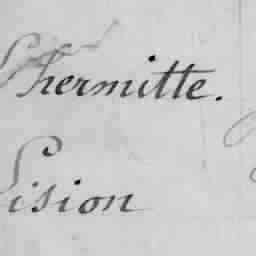 Lhermitte.
Lision